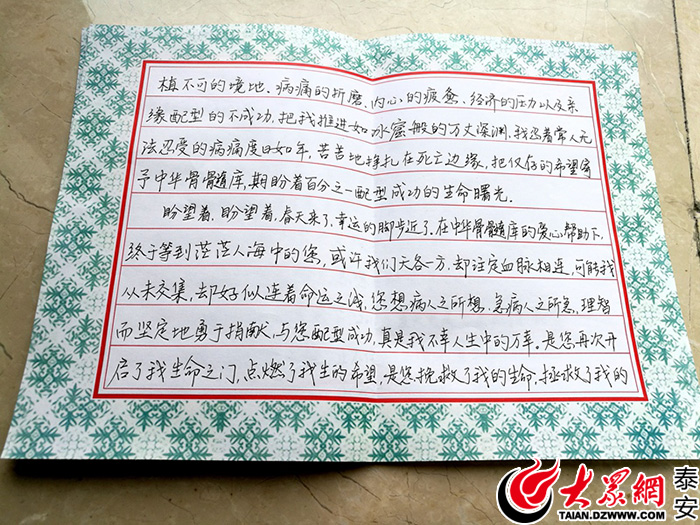 植不可的境地、病痛的折磨、内心的疲惫、经济的压力以及亲
缘配型的不成功,把我推进如冰窖般的万丈深渊,我忍着常人无
法忍受的病痛度日如年,苦苦地挣扎在死亡边缘,把仅存的希望寄
予中华骨髓库,期盼着百分之一配型成功的生命曙光。
盼望着,盼望着,春天来了,幸运的脚步近了。在中华骨髓库的爱心帮助下,
终于等到茫茫人海中的您,或许我们天各一方,却注定血脉相连,可能我
从未交集,却好似连着命运之线,您想病人之所想,急病人之所急,理智
而坚定地勇于捐献,与您配型成功,真是我不幸人生中的万幸。是您,再次开
启了我生命之门,点燃了我生的希望,是您,挽救了我的生命,拯救了我的
大众網
泰安
TAIAN.DZWWW.COM